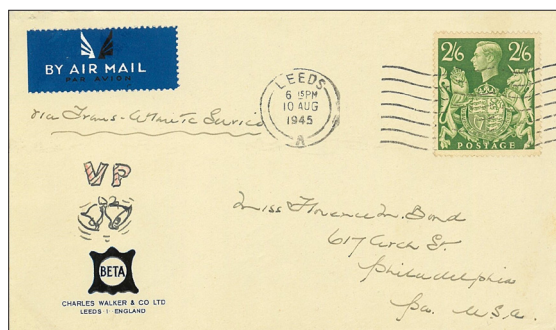 BY AIR MAIL
PAR AVION
2/6 2/6
LEEDS
6 15PM
10 AUG
1945
A
POSTAGE
via Trans-Atlantic Service
VP
BETA
CHARLES WALKER & CO LTD
LEEDS 1 ENGLAND
Miss Florence M. Bond
617 Arch St.
Philadelphia
Pa. U.S.A.